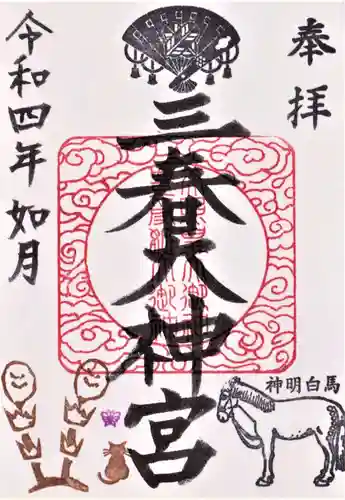 奉拝
三春大神宮
令和四年 如月
神明白馬